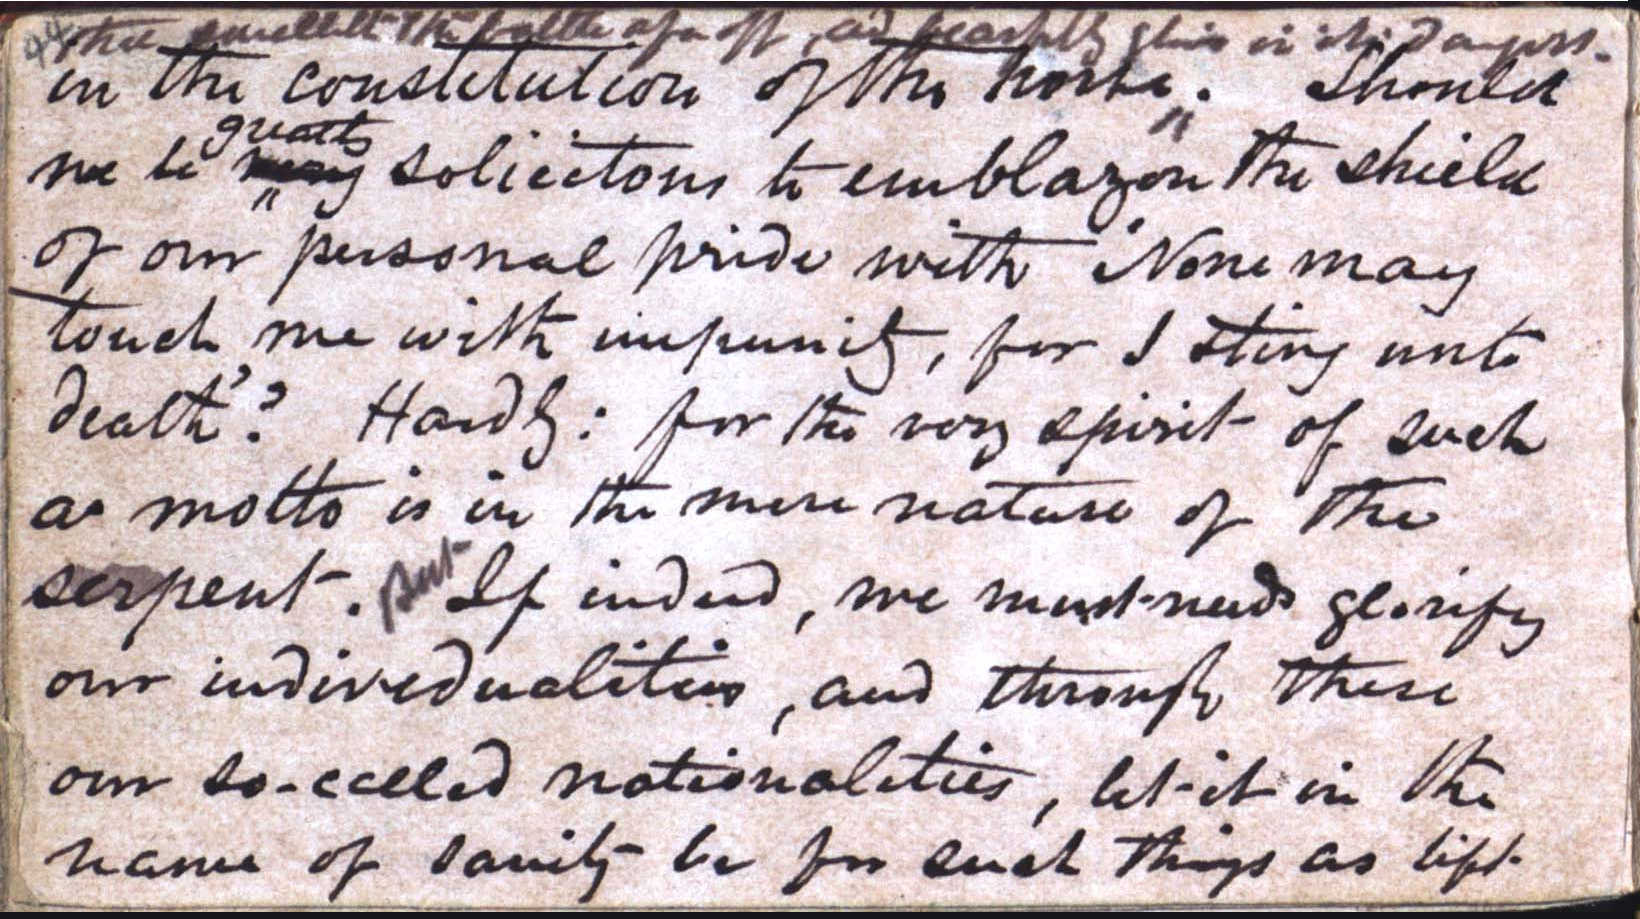 44
that smelleth the battle afar off, and beastfully glories in its dangers.
in the constitution of the horse. Should
greatly
we be very solicitous to emblazon the shield
of our personal pride with 'None may
touch me with impunity, for I sting unto
death'? Hardly: for the very spirit of such
a motto is in the mere nature of the
serpent. But If indeed, we must needs glorify
our individualities, and through these
our so-called nationalities, let it in the
name of sanity be for such things as lift